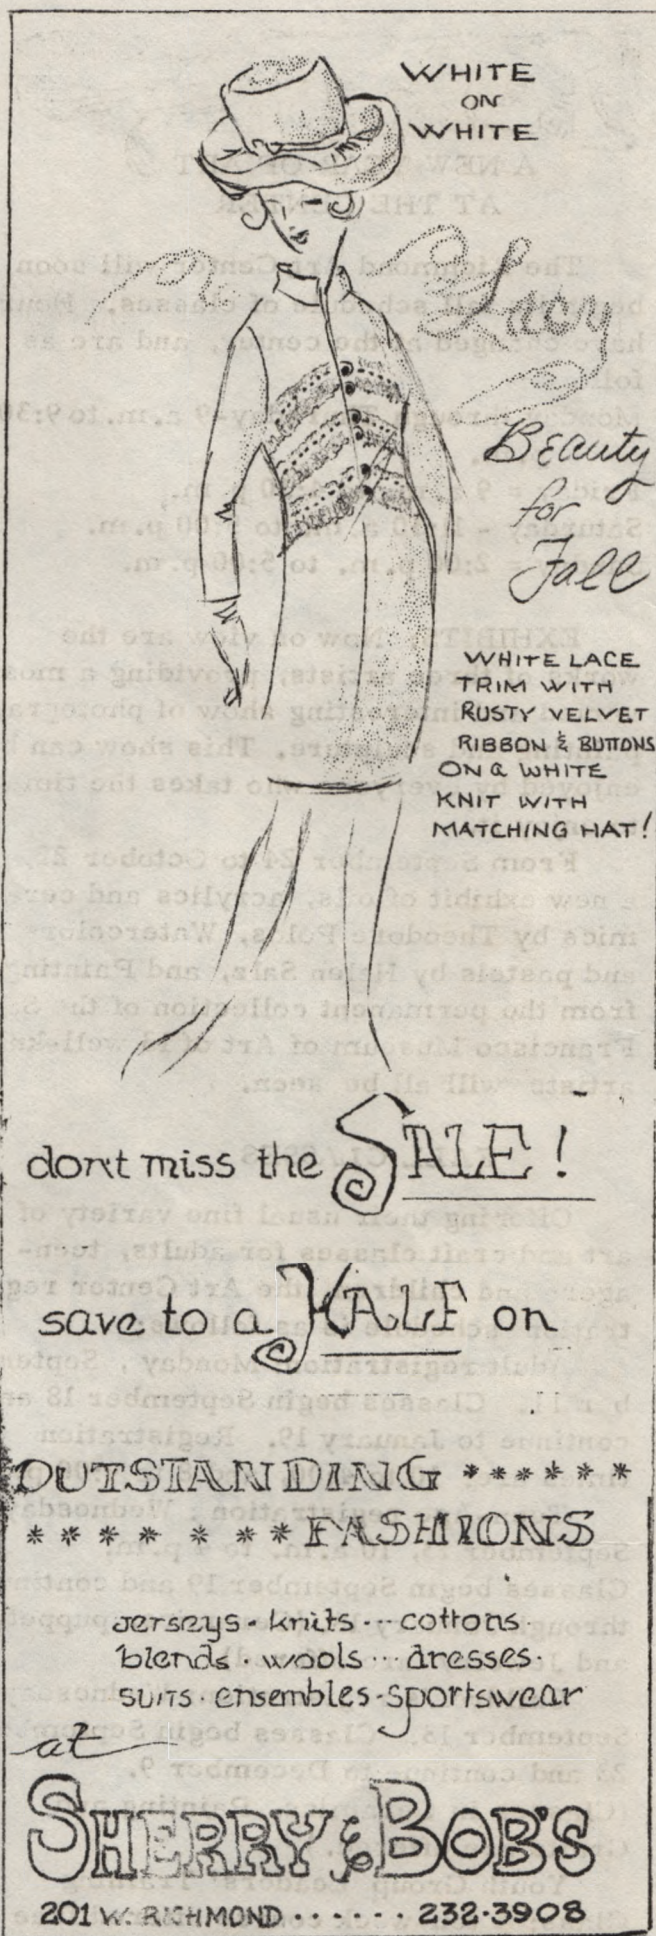 WHITE
ON
WHITE
Lacy
Beauty
for
Fall
WHITE LACE
TRIM WITH
RUSTY VELVET
RIBBON & BUTTONS
ON A WHITE
KNIT WITH
MATCHING HAT!
don't miss the SALE!
save to a HALF on
OUTSTANDING ******
******* FASHIONS
jerseys - knits --- cottons.
blends . wools ... dresses.
suits . ensembles - sportswear
at
SHERRY & BOB'S
201 W. RICHMOND ...... 232-3908